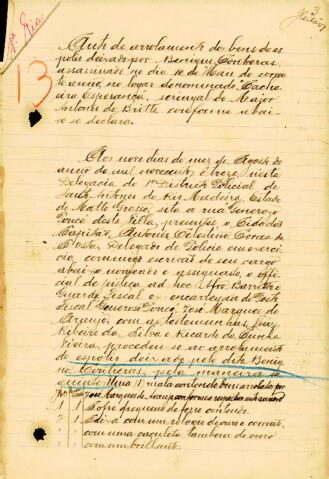 3
1ª Via
13
Auto de arrolamento do bens do es
polio deixado por Benigno Contreras,
assassinado no dia 10 de Maio do corren
te anno, no logar denominado "Cacho
eira Esperança", seringal do Major
Antonio de Britto conforme abai
xo se declara.
Aos nove dias do mez de Agosto do
anno de mil novecentos e treze, nesta
Delegacia do 1º Districto Policial de
Santo Antonio do Rio Madeira, Estado
de Matto Grosso, sito a rua Generoso
Ponce desta Villa, presentes o Cidadão
Capitão Antonio Celestino Corrêa da
Costa, Delegado de Policia em exer
cicio, commigo escrivão de seu cargo
abaixo nomeado e assignado, o offi
cial de justiça ad hoc Barretto
Guarda Fiscal e encarregado do Posto
Fiscal Generoso Ponce, José Marques de
Araujo, com as testemunhas Luiz
Ribeiro da Silva e Ricardo da Cunha
Vieira, procedeu-se ao arrolamento
do espolio deixado pelo dito Benig
no Contreras, pela maneira se
guinte: Uma (1) mala contendo bens arrolados por
José Marques de Araujo conforme
1 1 Cofre pequeno de ferro contendo
1 1 Caixa com um relogio de ouro e corrente
com uma caçoleta tambem de ouro
com um brilhante.